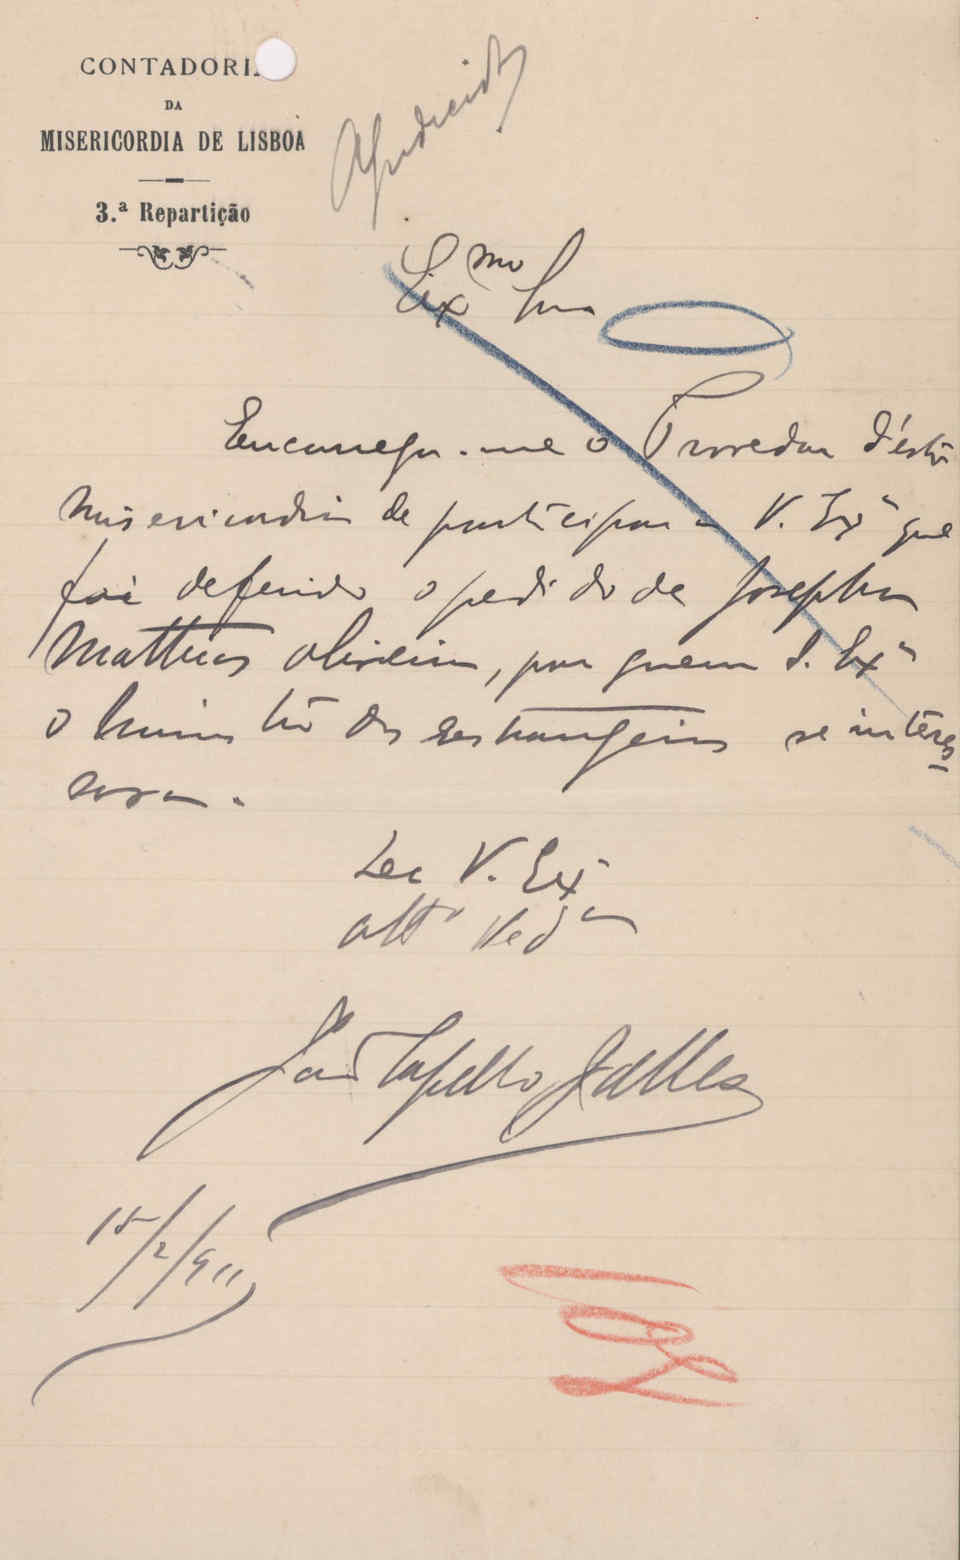 CONTADORIA
DA
MISERICORDIA DE LISBOA
3.ª Repartição
Exmo Snr
Encarrega-me o Provedor d'esta
Misericordia de participar a V. Exª que
foi deferido o pedido de Josepha
Mattos Oliveira, por quem S. Exª
o Ministro dos Estrangeiros se interes
sava.
De V. Exª
Attº Vedor
João Capello
15/2/911